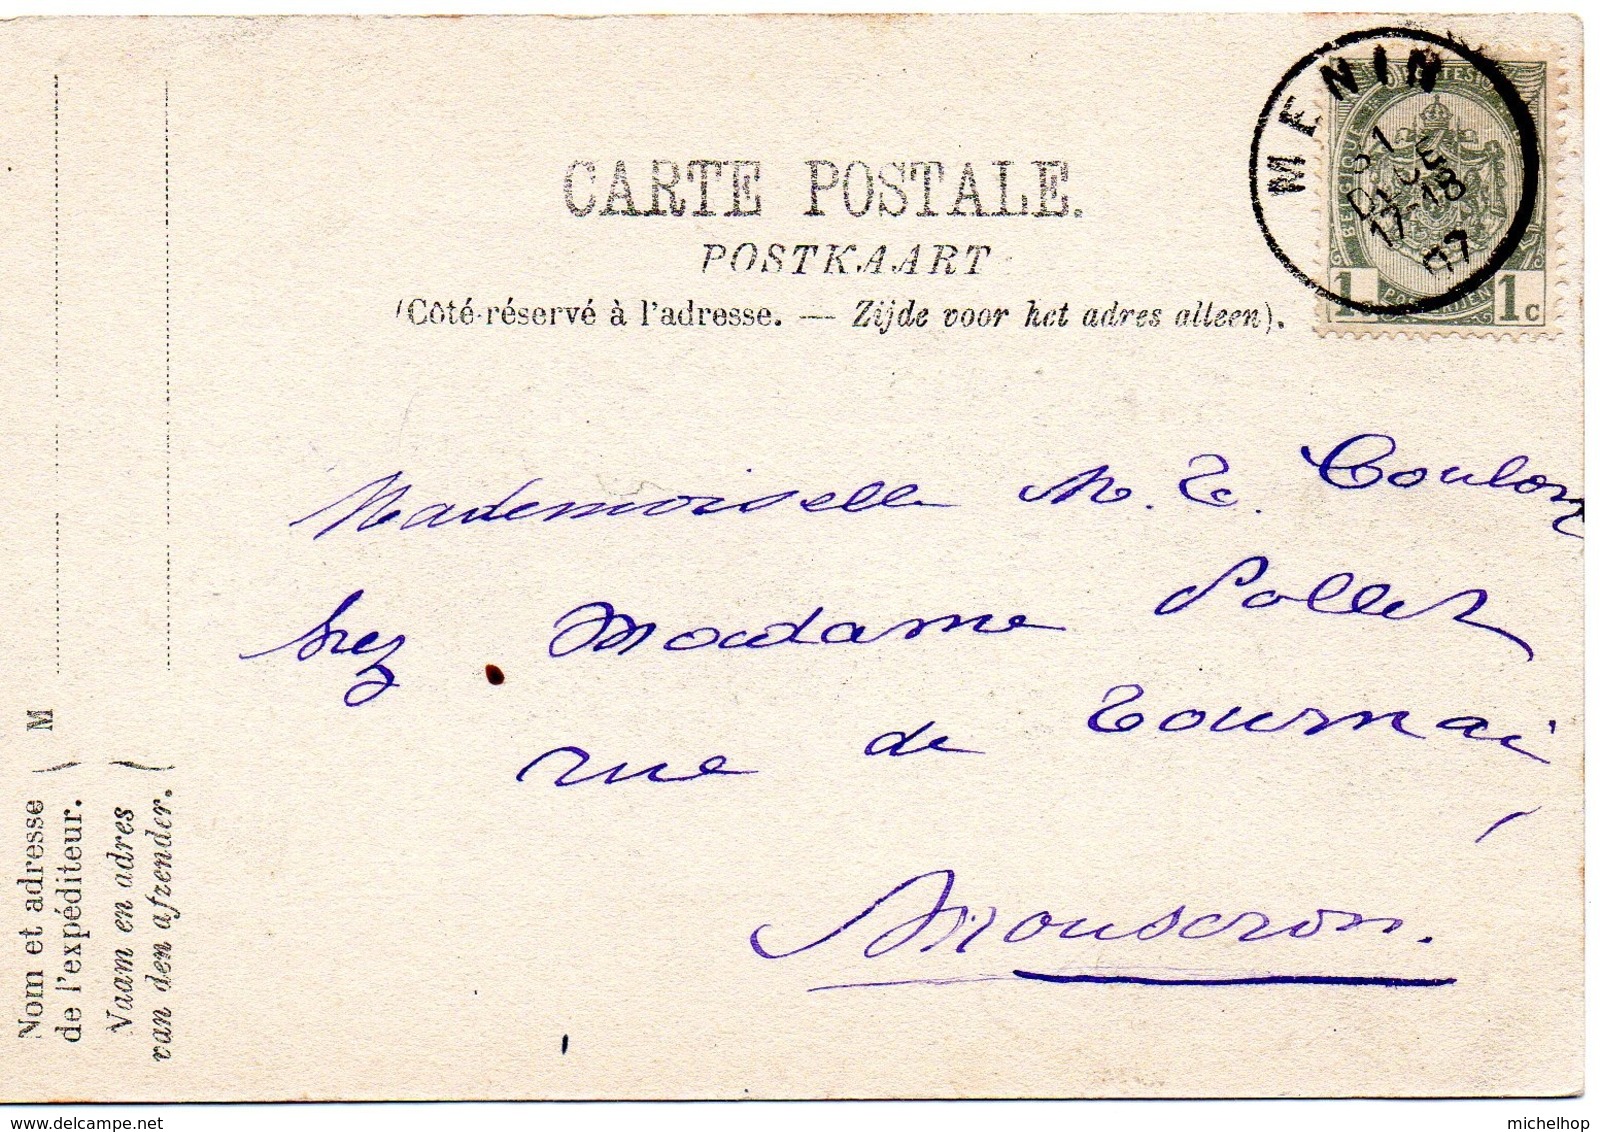 CARTE POSTALE.
POSTKAART
(Côté réservé à l'adresse. — Zijde voor het adres alleen).
MENIN
31 DEC
17-18
07
BELGIQUE
POSTES
1c 1c
Mademoiselle M. T. Coulon
chez Madame Pollet
rue de Tournai
Mouscron.
M
Nom et adresse
de l'expéditeur.
Naam en adres
van den afzender.
michelhop